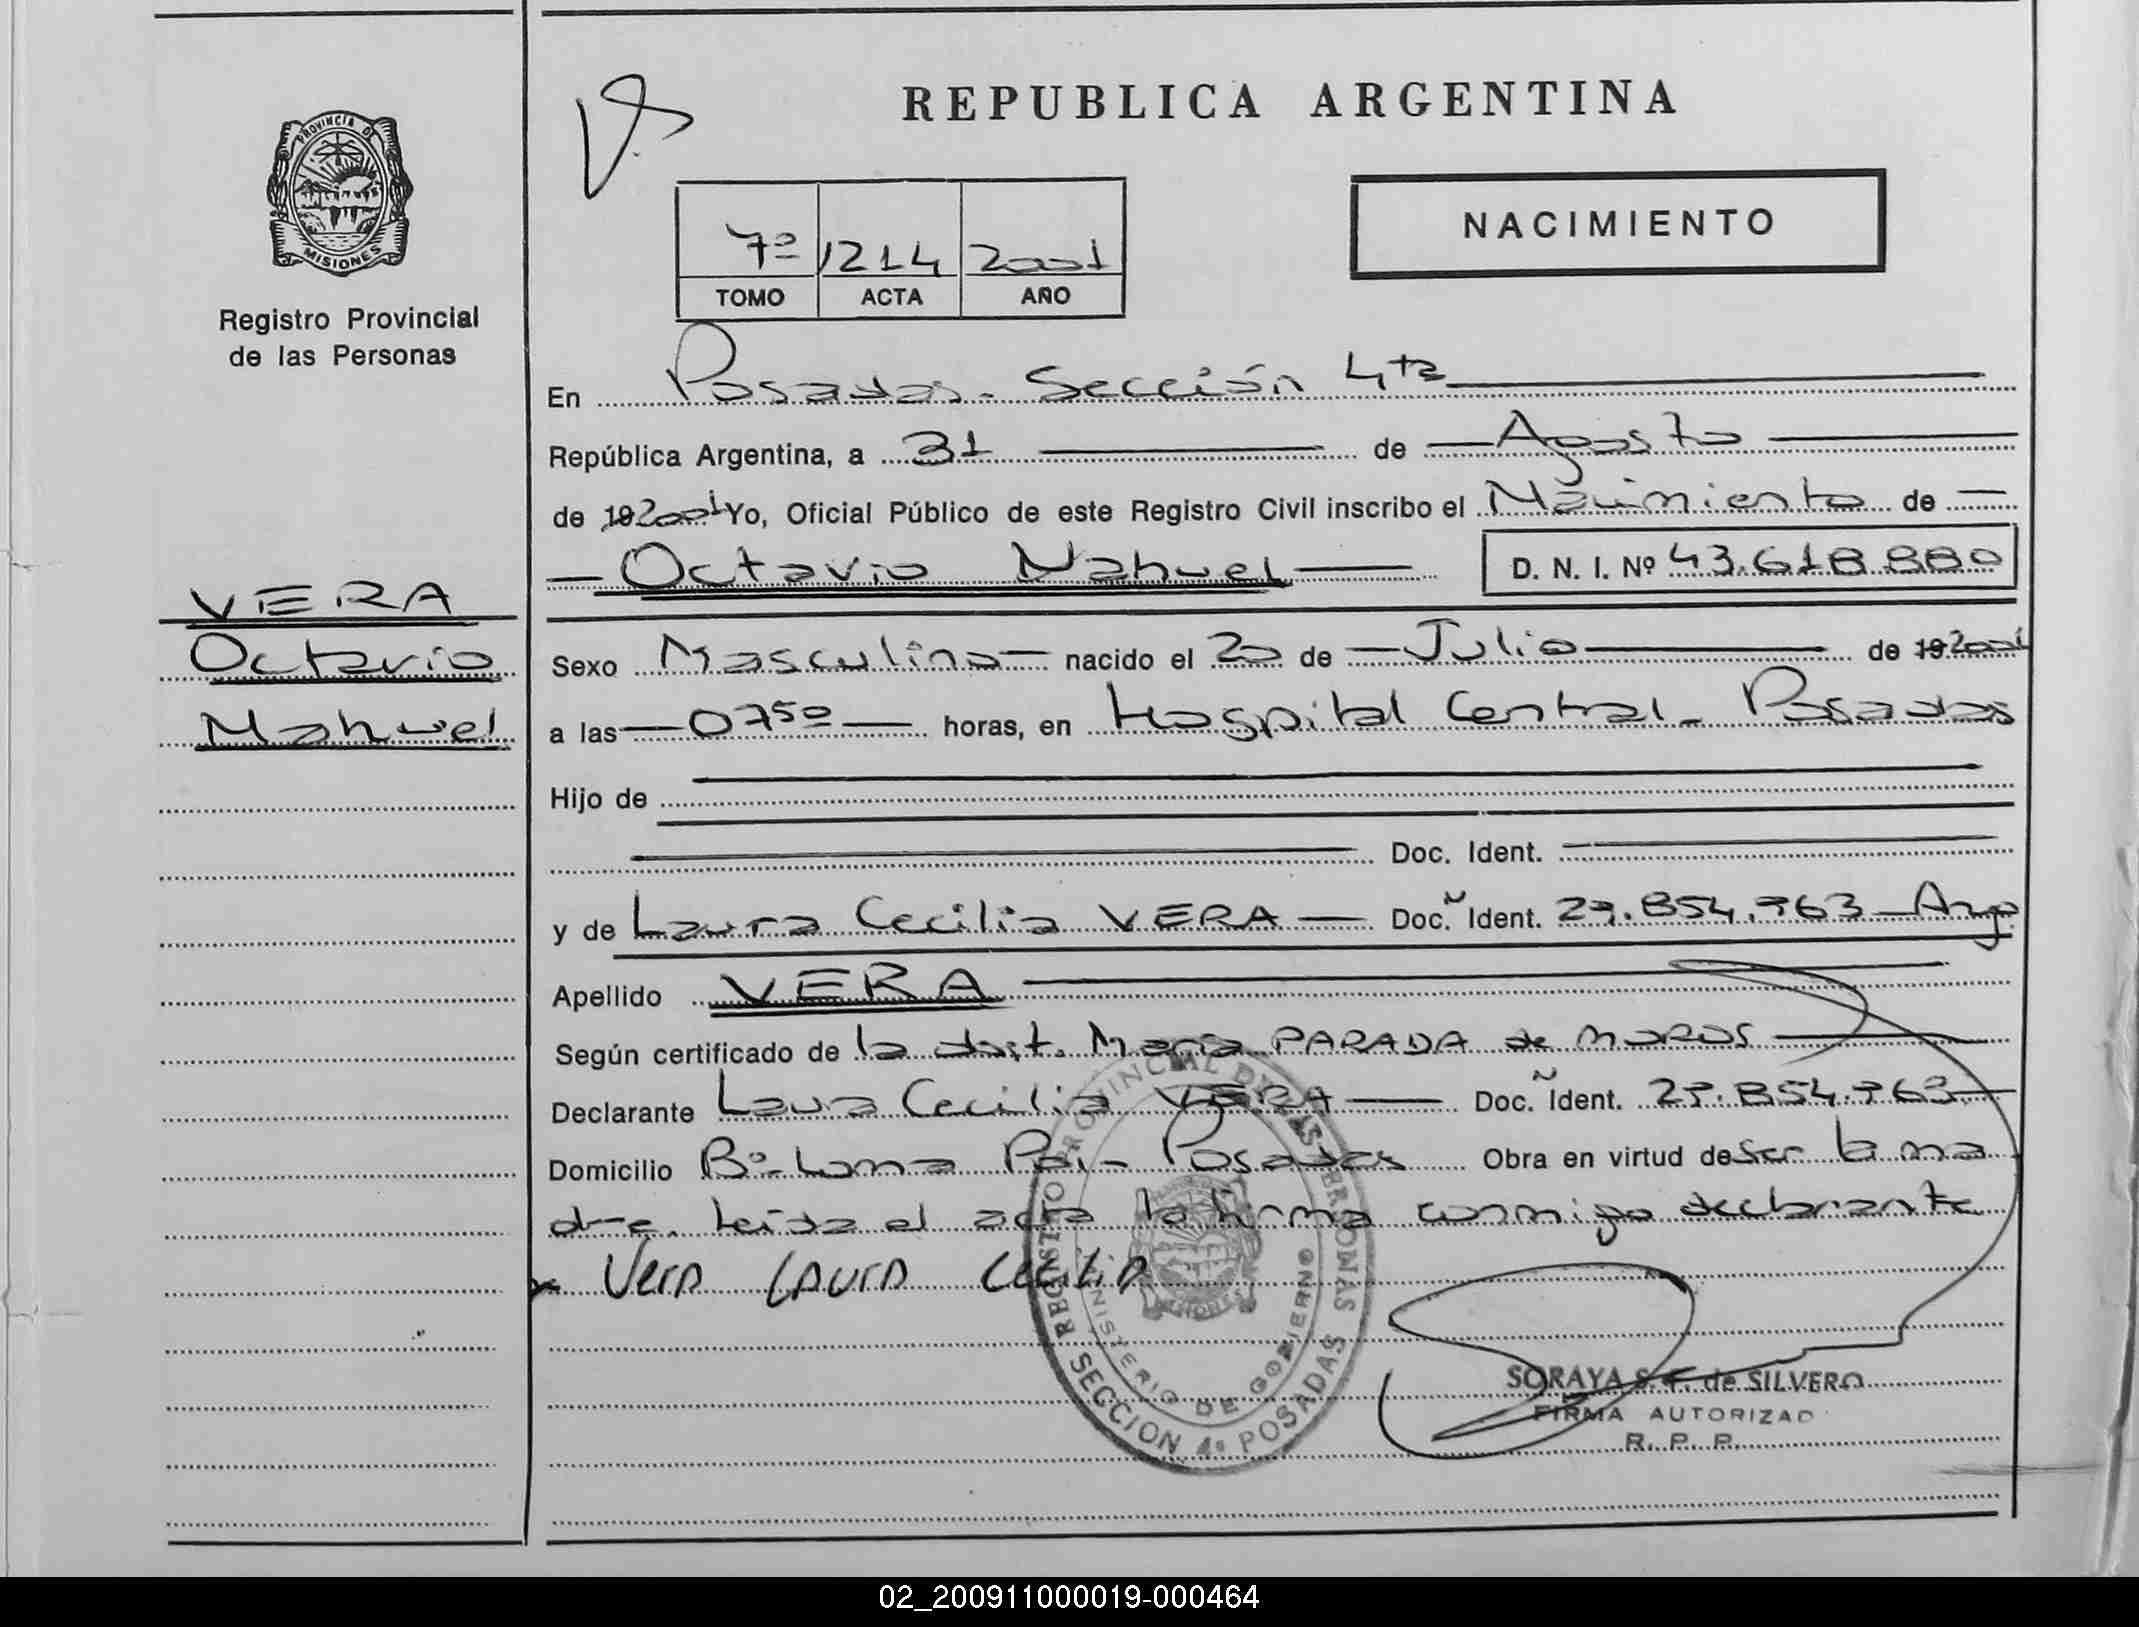 REPUBLICA ARGENTINA
PROVINCIA DE
MISIONES
Registro Provincial
de las Personas
NACIMIENTO
7º 1214 2001
TOMO ACTA AÑO
En Posadas - Sección 4ta
República Argentina, a 31 de Agosto
de 19 2001 Yo, Oficial Público de este Registro Civil inscribo el Nacimiento de
Octavio Nahuel D. N. I. Nº 43.618.880
VERA
Octavio
Nahuel
Sexo Masculino nacido el 20 de Julio de 19 2001
a las 07 50 horas, en Hospital Central - Posadas
Hijo de
Doc. Ident.
y de Laura Cecilia VERA Doc. Ident. Arg.
Apellido VERA
Según certificado de la María PARADA de MOROS
Declarante Laura Cecilia VERA Doc. Ident.
Domicilio Bº Loma Poi - Posadas Obra en virtud de ser la ma
dre. Leída el acta la firma conmigo declarante
x Vera Laura Cecilia
REGISTRO PROVINCIAL DE LAS PERSONAS
MINISTERIO DE GOBIERNO
SECCION 4ª POSADAS
SORAYA S. F. de SILVERO
FIRMA AUTORIZAD
R. P. P.
02_200911000019-000464